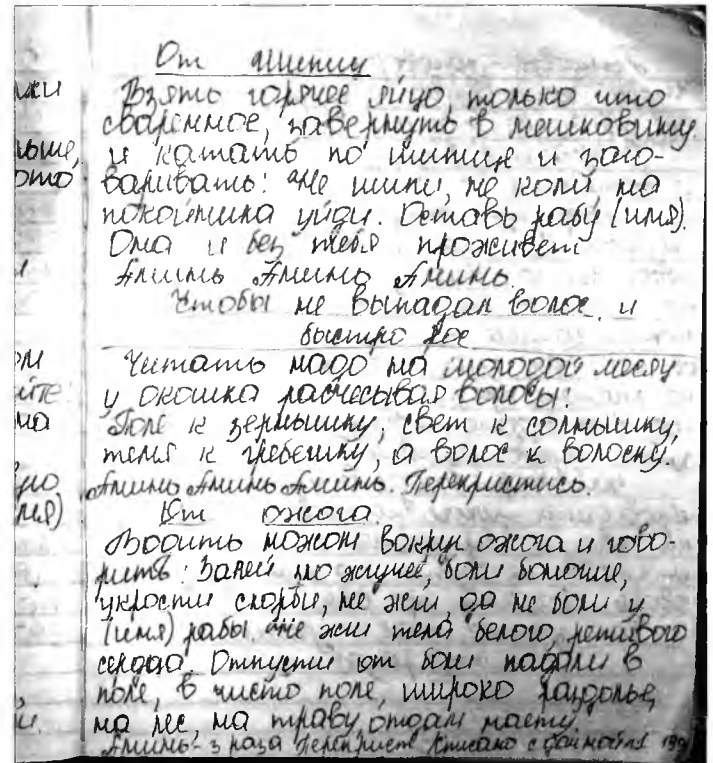 От шипиц
жки
Взять горячее яйцо, только что
сваренное, завернуть в мешковину
льше,
и катать по шипице и заго-
ото
варивать: "Не шипи, не коли на
покойника уйди. Оставь рабу (имя).
Она и без тебя проживет
Аминь Аминь Аминь.
Чтобы не выпадал волос и
быстро рос
ом
Читать надо на молодой месяц
йте:
у окошка расчесывая волосы:
на
Поле к зернышку, свет к солнышку,
темя к гребешку, а волос к волоску.
Аминь Аминь Аминь. Перекрестись.
мя)
От ожога
Водить ножом вокруг ожога и гово-
рить: жгучее, боли
укрости скорби, не жги, да не боли у
(имя) рабы не жги тела белого, ретивого
сердца. Отпусти от боли в
поле, в чисто поле, широко раздолье,
на лес, на траву отдам
Аминь - 3 раза Списано с 199